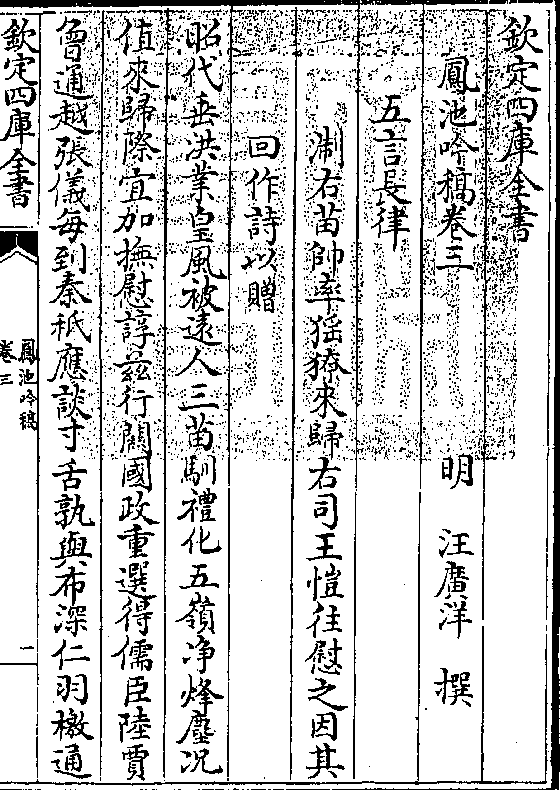 欽定四庫全書
鳳池吟稿卷三
明 汪廣洋 撰
五言長律
湖右苗帥率猺獠來歸右司王愷往慰之因其
回作詩以贈
昭代垂洪業皇風被遠人三苗馴禮化五嶺净烽塵况
值來歸際宜加撫慰諄兹行關國政重選得儒臣陸賈
曾通越張儀每到秦秪應談寸舌孰與布深仁羽檄通
欽定四庫全書
鳳池吟稿
卷三
一